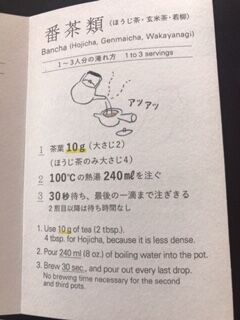 番茶類(ほうじ茶・玄米茶・若柳)
Bancha (Hojicha, Genmaicha, Wakayanagi)
1〜3人分の淹れ方 1 to 3 servings
アッアッ
1 茶葉10g(大さじ2)
(ほうじ茶のみ大さじ4)
2 100℃の熱湯240mlを注ぐ
3 30秒待ち、最後の一滴まで注ぎきる
2煎目以降は待ち時間なし
1. Use 10g of tea (2 tbsp.).
4 tbsp. for Hojicha, because it is less dense.
2. Pour 240ml (8 oz.) of boiling water into the pot.
3. Brew 30 sec., and pour out every last drop.
No brewing time necessary for the second
and third pots.